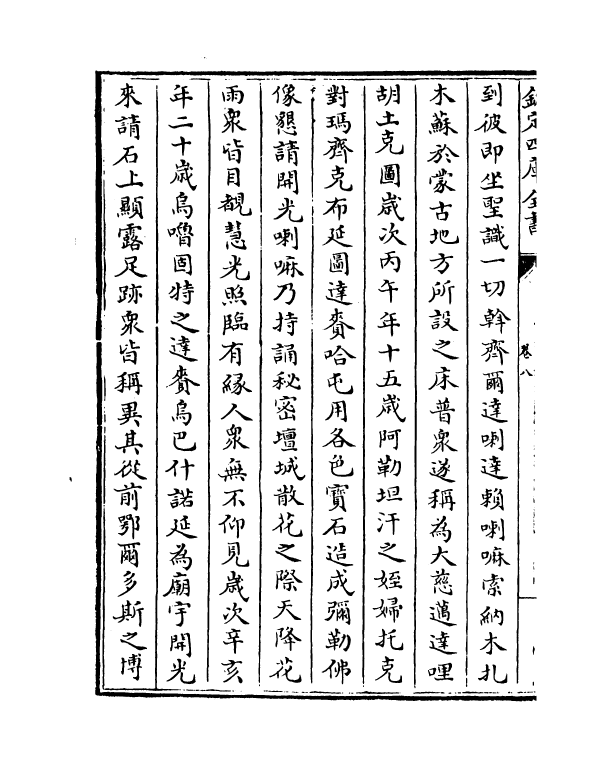 欽定四庫全書
卷八
到彼即坐聖識一切斡齊爾達喇達賴喇嘛索納木扎
木蘇於蒙古地方所設之床普衆遂稱為大慈邁達哩
胡土克圖歳次丙午年十五歳阿勒坦汗之姪婦托克
對瑪齊克布延圖達賚哈屯用各色寶石造成彌勒佛
像懇請開光喇嘛乃持誦秘密壇城散花之際天降花
雨衆皆目覩慧光照臨有縁人衆無不仰見歳次辛亥
年二十歳烏嚕固特之達賚烏巴什諾延為廟宇開光
來請石上顯露足跡衆皆稱異其從前鄂爾多斯之博